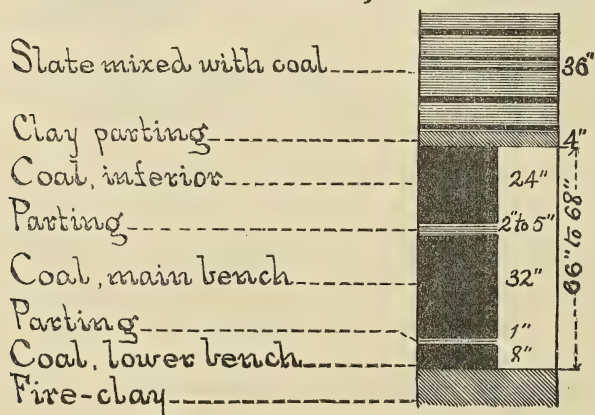 Slate mixed with coal 36"
Clay parting 4"
Coal, inferior 24"
Parting 2" to 5"
66" to 68"
Coal, main bench 32"
Parting 1"
Coal, lower bench 8"
Fire-clay